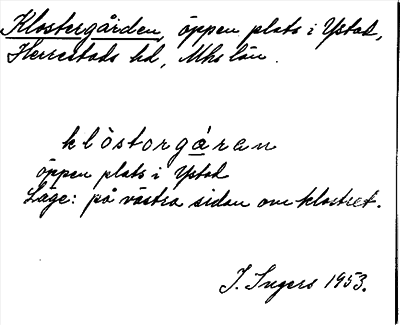 Klostergården, öppen plats i Ystad,
Herrestads hd, Mhs län.
klòstorgáran
öppen plats i Ystad
Läge: på västra sidan om klostret.
J. Ingers 1953.